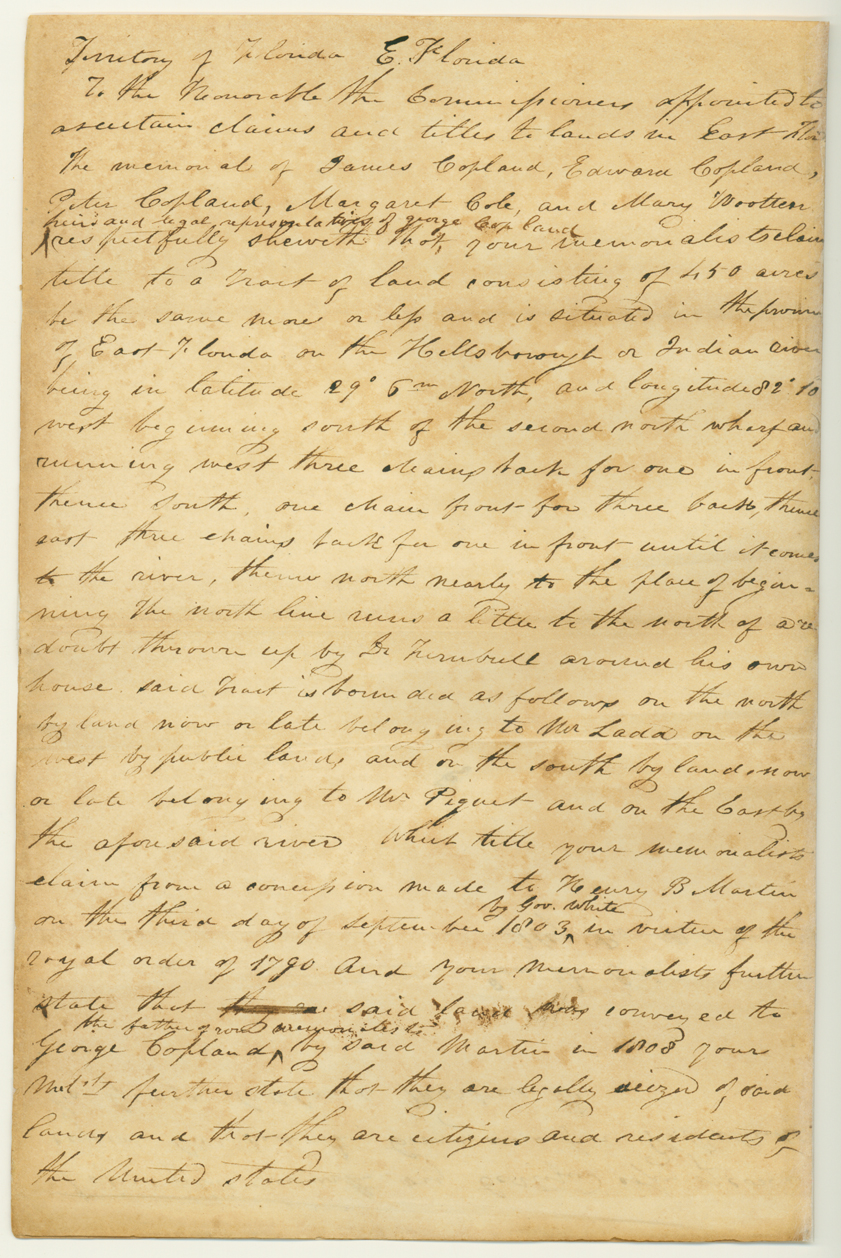 Territory of Florida E. Florida
To the Honorable the Commissioners appointed to
ascertain claims and titles to lands in East Flo
The memorial of James Copland, Edward Copland,
Peter Copland, Margaret Cole, and Mary Wootten
heirs and legal representatives of george Copland
respectfully sheweth that, your memorialists claim
title to a tract of land consisting of 450 acres
be the same more or less and is situated in the provin
of East Florida on the Hellsborough or Indian river
being in latitude 29° 6m North, and longitude 82° 10
west beginning south of the second north wharf and
running west three chains back for one in front,
thence South, one chain front for three back, thence
east three chains back for one in front until it comes
to the river, thence north nearly to the place of begin=
ning The north line runs a little to the north of a re
doubt thrown up by Dr Turnbull around his own
house. said tract is bounded as follows on the north
by land now or late belonging to Mr Ladd on the
west by public lands and on the south by lands now
or late belonging to Mr Piquet and on the East by
the aforesaid river Which title your memorialists
claim from a concession made to Henry B Martin
by Gov. White
on the third day of september 1803, in virtue of the
royal order of 1790 And your memorialists further
state that said land was conveyed to
the father of your memorialists
George Copland, by said Martin in 1808 yours
Mel'sts further state that they are legally seized of said
lands and that they are citizens and residents of
the United states